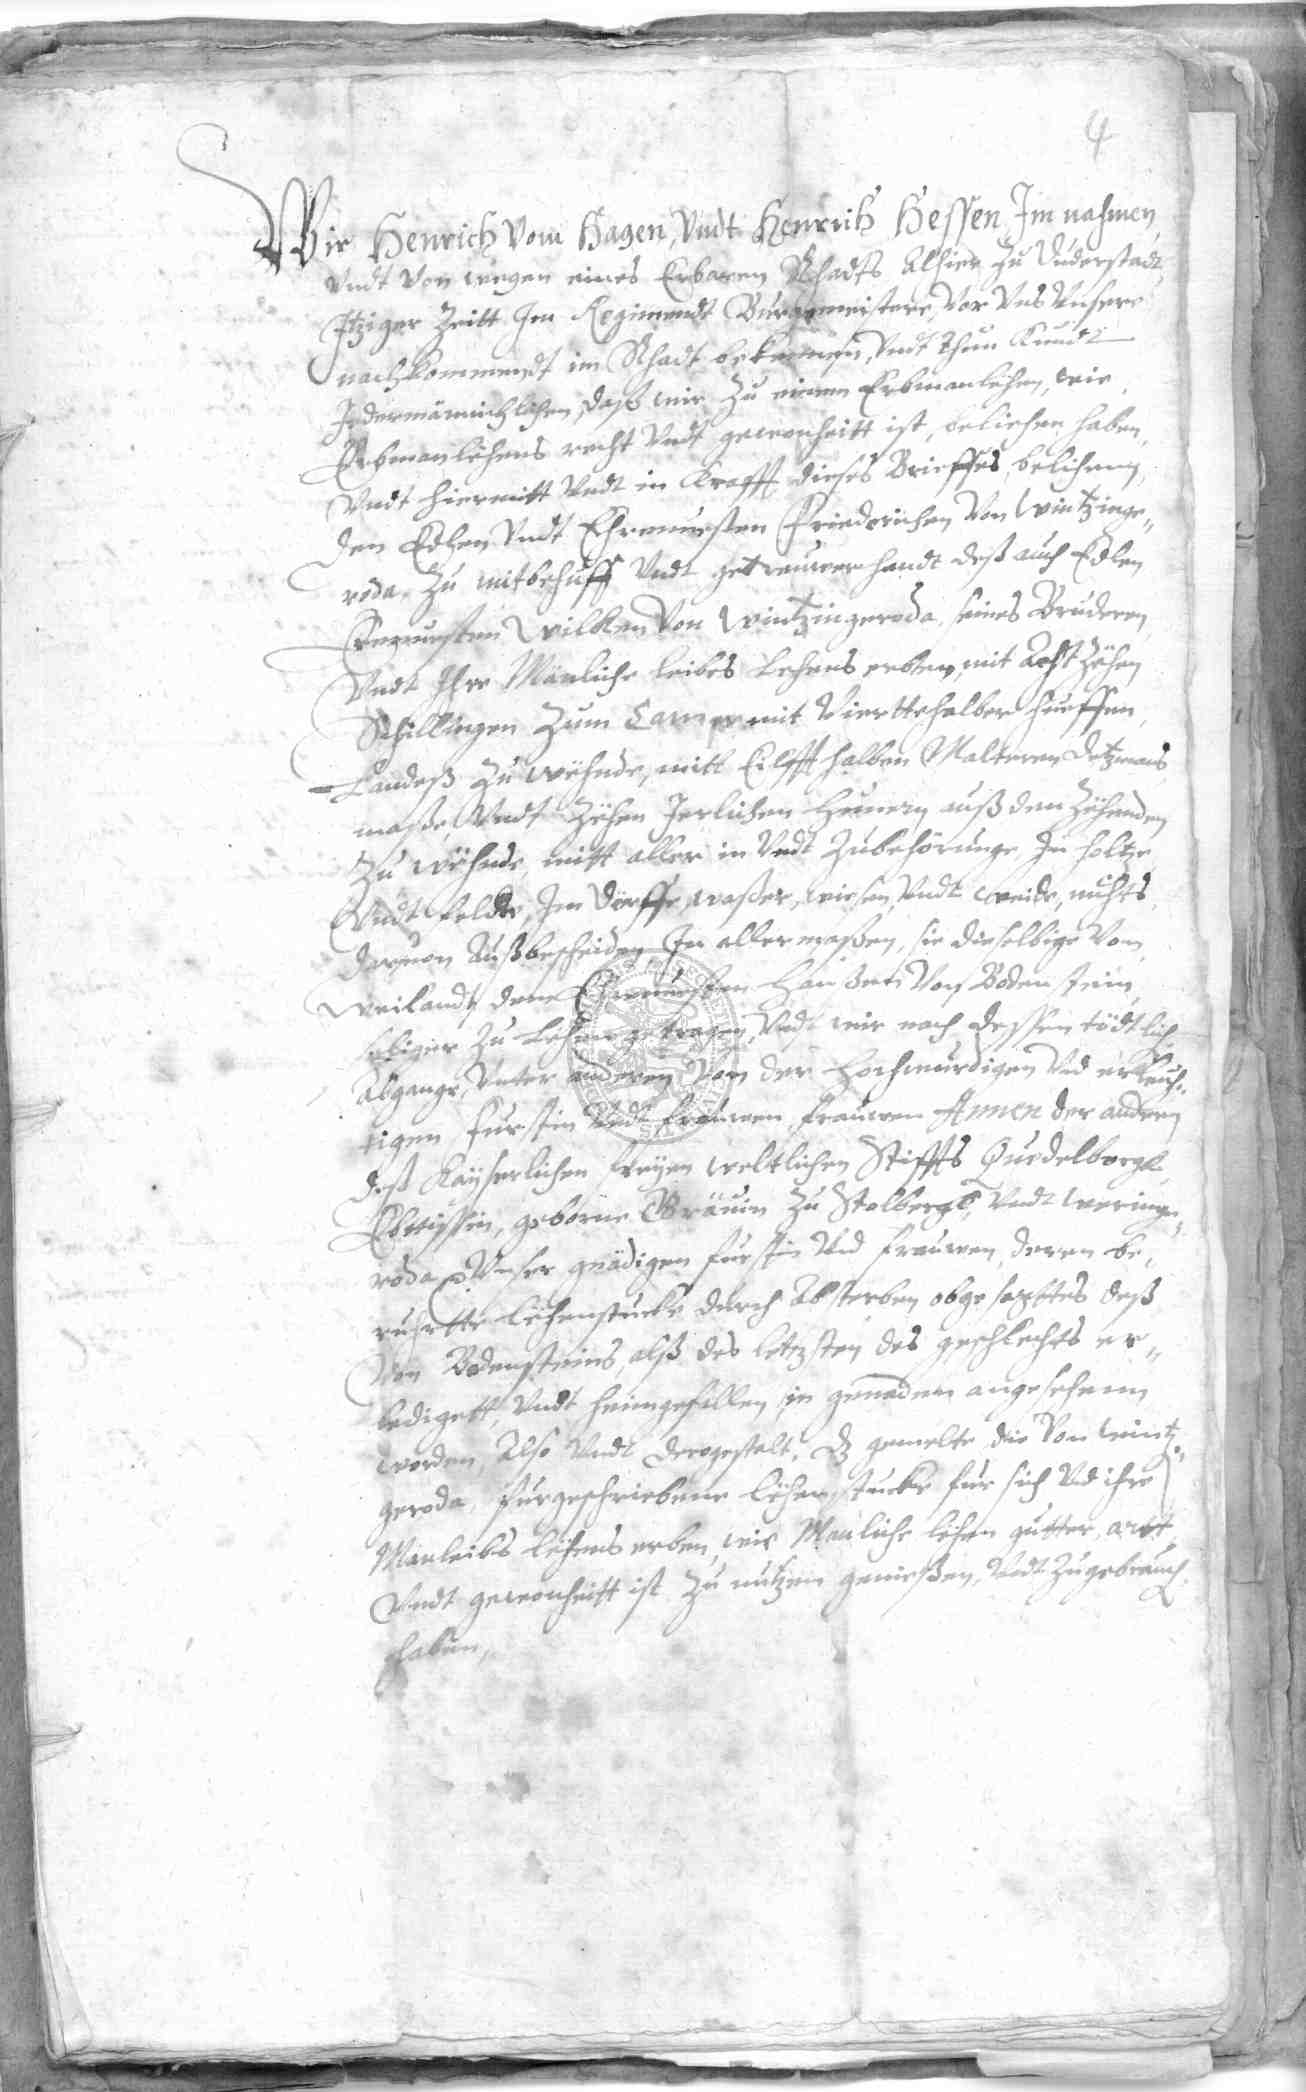 4
Wir Henrich vom Hagen, Vndt Henrich Hessen, Im nahmen,
Vndt von wegen eines Erbaren Rhadts Alhier zu Duderstadt,
Itziger Zeitt Im Regimendt Burgemeistere, Vor Vns Vnsere
nachkommendt im Rhadt bekennen, Vndt thun Kundt
Jedermänniglichen, daß wir Zu einem Erbmanlehen, wie
Erbmanlehens recht Vndt gewonheitt ist, beliehen haben,
Vndt hiermitt Vndt in Krafft dieses Brieffes, belihenn,
den Edlen Vndt Ehrnuesten Friederichen Von Wintzinge„
roda, Zu mitbehuff Vndt getreuwer handt deß auch Edlen
Ernuesten Wilken Von Wintzingeroda, seines Bruderen
Vndt Ihre Mänliche leibes Lehens erben, mit Acht Zehen
Schillingen Zum Camp, mit Vierttehalber hueffen,
Landeß Zu Wehnde, mitt Eilfft halben Malteren Detzmans
maße Vndt Zehen Jerlichen Hunern auß den Zehenden
Zu Wehnde, mitt aller in Vndt Zubehörunge, In holtze
Vndt felde, Im Dorffe, waßer, wiesen, Vndt weide, nichts
daruon Außbescheiden, In allermaßen, sie dieselbige Von
Weilandt dem Ehrnuesten Hanßen Von Bodenstein
seliger Zu Lehen getragen, Vndt wie nach dessen tödtlich
Abgange, Vnter anderen Von der Hochwurdigen Vnd erleuch„
tigen Furstin Vndt frauwen, frauwen Annen der andern
deß Kayserlichen freyen weltlichen Stiffts Quedelborgk
Ebtissin, geborne Gräuin Zu Stolbergk, Vndt Weringe„
roda Vnser gnädigen furstin Vnd frauwen, deren be„
rurtte Lehenstucke durch Absterben obgesagttes deß
Von Bodensteins, alß des letzsten des geschlechts er„
ledigett, Vndt heimgefallen, in genaden angesehenn
worden, Also Vndt derogestalt, dz gemelte die Von Wintz„
geroda, furgeschriebene Lehenstucke fur sich Vnd ihre
Manleibs lehens erben, wie Manliche lehen gutter, artt
Vndt gewonheitt ist Zu nutzen genießen, Vndt Zugebrauch
haben,